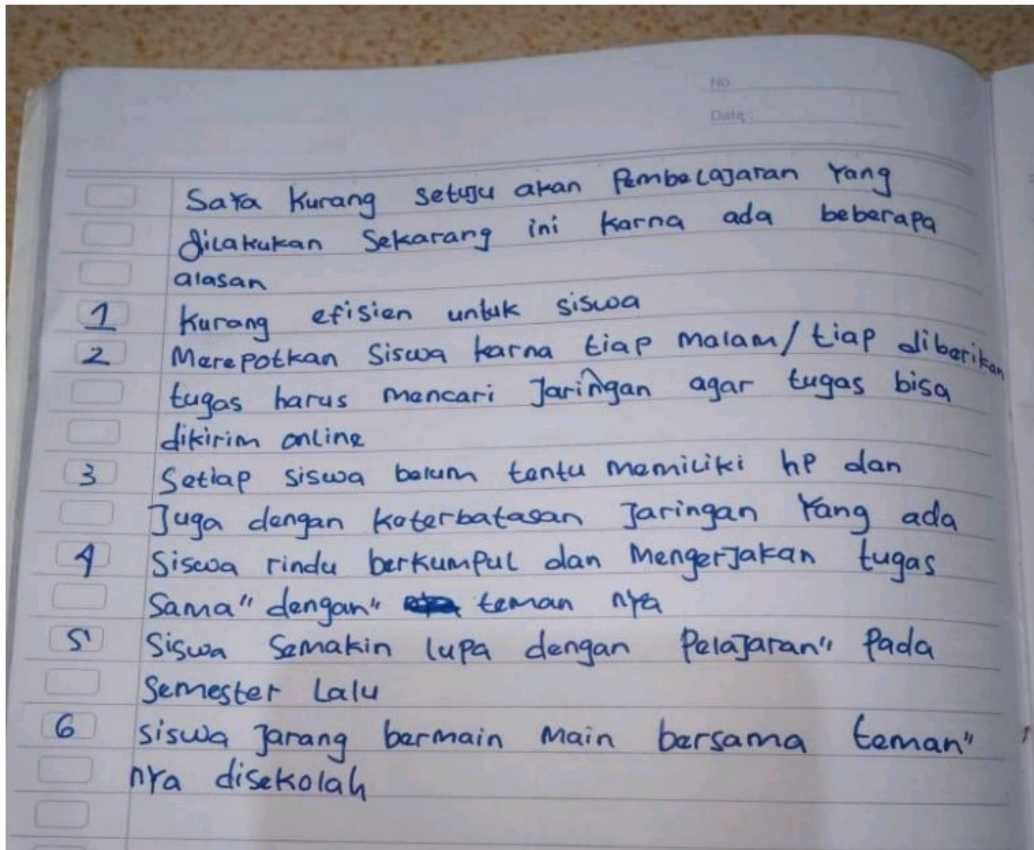 No.
Date:
Saya kurang setuju akan pembelajaran yang
dilakukan sekarang ini karna ada beberapa
alasan
1 Kurang efisien untuk siswa
2 Merepotkan siswa karna tiap malam/tiap diberikan
tugas harus mencari Jaringan agar tugas bisa
dikirim online
3 Setiap siswa belum tentu memiliki hp dan
Juga dengan keterbatasan Jaringan yang ada
4 Siswa rindu berkumpul dan mengerjakan tugas
sama" dengan" teman nya
5 Siswa semakin lupa dengan pelajaran" pada
semester lalu
6 siswa jarang bermain main bersama teman"
nya disekolah